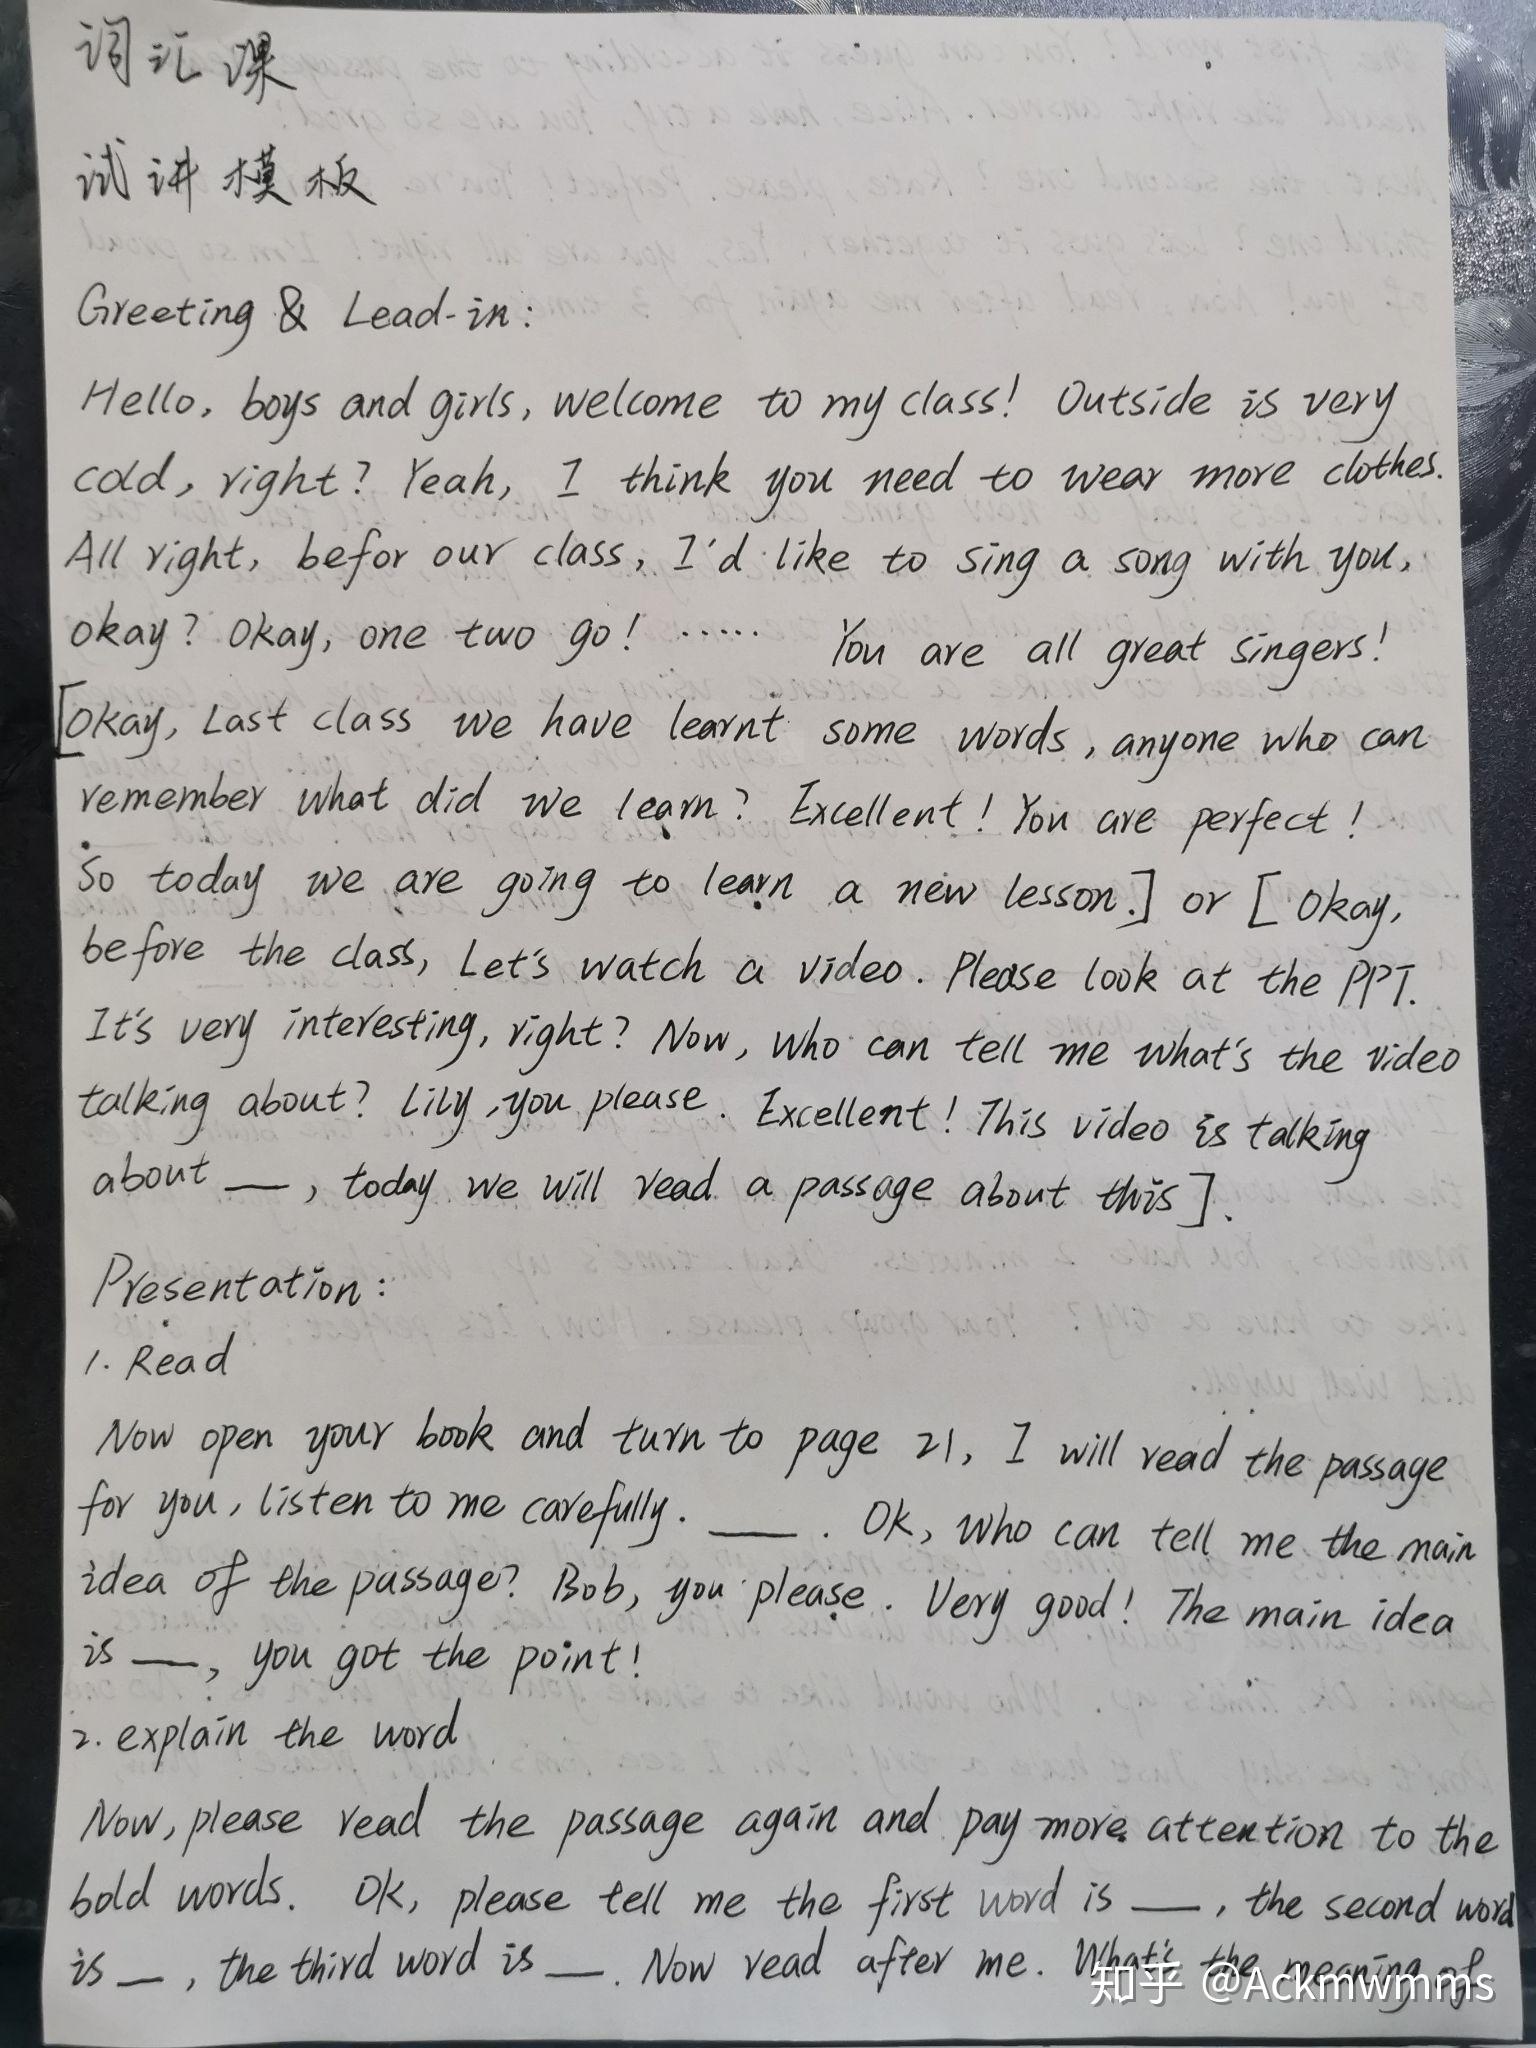 词汇课
试讲模板
Greeting & Lead-in:
Hello, boys and girls, welcome to my class! Outside is very
cold, right? Yeah, I think you need to wear more clothes.
All right, befor our class, I'd like to sing a song with you,
okay? Okay, one two go! ····· You are all great singers!
[Okay, Last class we have learnt some words, anyone who can
remember what did we learn? Excellent! You are perfect!
So today we are going to learn a new lesson.] or [Okay,
before the class, Let's watch a video. Please look at the PPT.
It's very interesting, right? Now, who can tell me what's the video
talking about? Lily, you please. Excellent! This video is talking
about __, today we will read a passage about this].
Presentation:
1. Read
Now open your book and turn to page 21, I will read the passage
for you, listen to me carefully. ___. Ok, who can tell me the main
idea of the passage? Bob, you please. Very good! The main idea
is __, you got the point!
2. explain the word
Now, please read the passage again and pay more attention to the
bold words. OK, please tell me the first word is __, the second word
is __, the third word is __. Now read after me. What's the meaning of
知乎 @Ackmwmms